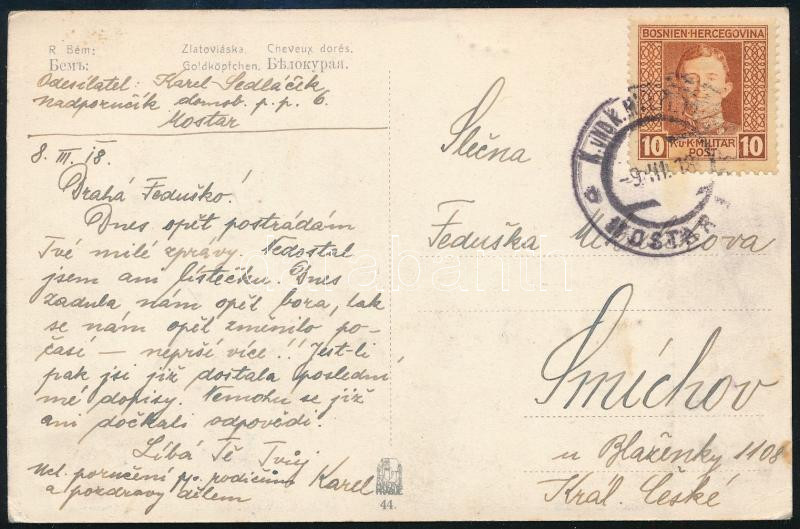 R. Bém: Zlatovláska. Cheveux dorés.
Бемъ: Goldköpfchen. Бѣлокурая.
Odesílatel: Karel Sedláček
nadporučík domob. p. p. 6
Mostar
8. III. 18.
Drahá Feduško!
Dnes opět postrádám
Tvé milé zprávy. Nedostal
jsem ani lístečku. Dnes
zadula nám opět bora, tak
se nám opět změnilo po-
časí — neprší více!! Jest-li
pak jsi již dostala poslední
mé dopisy. Nemohu se již
ani dočkati odpovědi.
Líbá Tě Tvůj
Karel
Uct. poručení rodičům
a pozdravy dětem
44.
BOSNIEN-HERCEGOVINA
10 K.u.K. MILITÄR POST 10
K. UND K.
-9.III.18
MOSTAR
Slečna
Feduška
Smíchov
u Blaženky 1108
Král. České